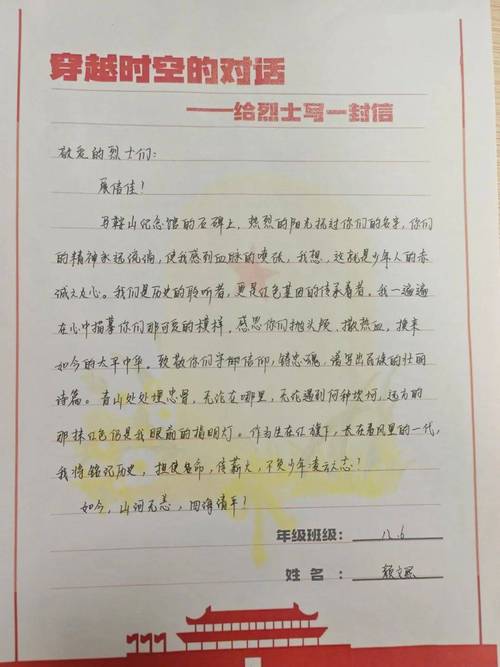 穿越时空的对话
——给烈士写一封信
敬爱的烈士们：
展信佳！
马鞍山纪念馆的石碑上，热烈的阳光抚过你们的名字，你们
的精神永远流淌，使我感到血脉的喷张，我想，这就是少年人的赤
诚之心。我们是历史的聆听者，更是红色基因的传承者。我一遍遍
在心中描摹你们那可爱的模样，感恩你们抛头颅、撒热血，换来
如今的太平中华。致敬你们守卿信仰，铸忠魂，谱写出民族的壮丽
诗篇。青山处处埋忠骨，无论在哪里，无论遇到何种坎坷，远方的
那抹红色仍是我眼前的指明灯。作为生在红旗下，长在春风里的一代，
我将铭记历史，担使命，传薪火，不负少年凌云志！
如今，山河无恙，四海清平！
年级班级：
姓 名：